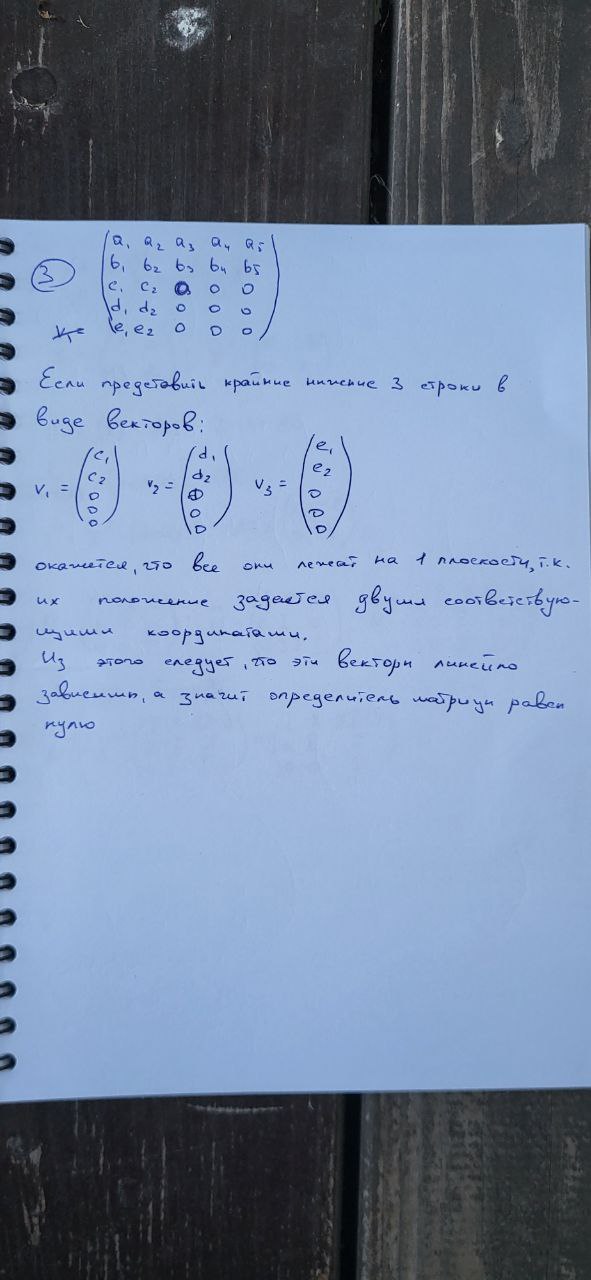 3
a₁ a₂ a₃ a₄ a₅
b₁ b₂ b₃ b₄ b₅
c₁ c₂ 0 0 0
d₁ d₂ 0 0 0
V₁= e₁ e₂ 0 0 0
Если представить крайние нижние 3 строки в
виде векторов:
V₁ = (c₁ c₂ 0 0 0) V₂ = (d₁ d₂ 0 0 0) V₃ = (e₁ e₂ 0 0 0)
окажется, что все они лежат на 1 плоскости, т.к.
их положение задается двумя соответствую-
щими координатами.
Из этого следует, что эти векторы линейно
зависимы, а значит определитель матрицы равен
нулю